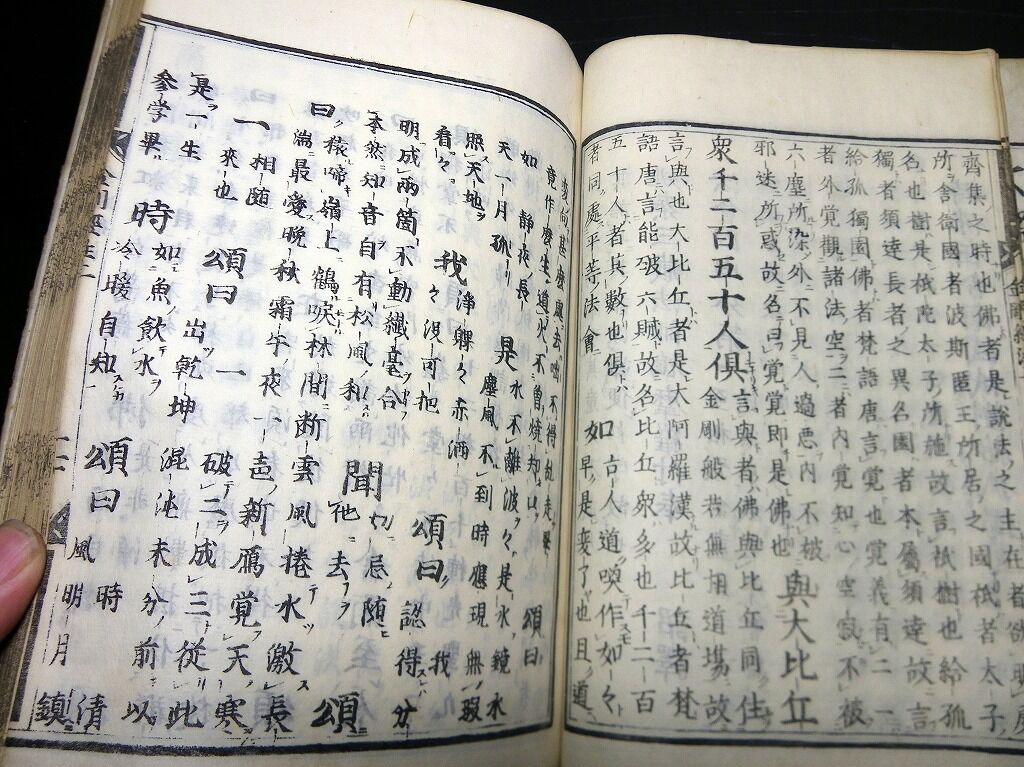 齊集之時也佛者是說法之主在者欲
所舍衛國者波斯匿王所居之國祇者太子
名也樹是祇陀太子所施故言祇樹也給孤
獨者須達長者之異名園者本屬須達故言
給孤獨園佛者梵語唐言覺也覺義有二一
者外覺觀諸法空二者內覺知心空寂不被
六塵所染外不見人過惡內不被
邪迷所惑故名曰覺覺即是佛也 與大比丘
眾千二百五十人俱 言與者佛與比丘同住
金剛般若無相道場故
言與也大比丘者是大阿羅漢故比丘者梵
語唐言能破六賊故名比丘眾多也千二百
五十人者其數也俱者同處平等法會 如 古人道喚作如々
早是変了也且道
変向甚麼處去咄不得乱走畢
竟作麼生道火不曽燒却口 頌曰
如 静夜長天一月孤 是 水不離波々是水鏡水
塵風不到時應現無瑕照天地
看々 我 浄躶々赤洒々没可把 頌曰 認得我分
明成兩箇不動纖毫合
本然知音自有松風和 聞 切忌随他去 頌
曰 猿啼嶺上鶴唳林間断雲風捲水激長
湍最愛晚秋霜午夜一声新鴈覚天寒
一 相随来也 頌曰 一破二成三従此
出乾坤混沌未分前以
是一生参学畢 時 如魚飲水冷暖自知 頌曰 時清
風明月鎮